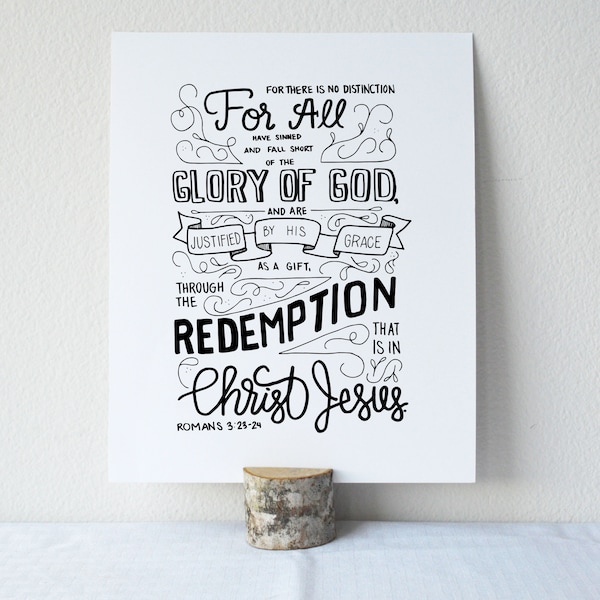 FOR THERE IS NO DISTINCTION
For All
HAVE SINNED
AND FALL SHORT
OF THE
GLORY OF GOD,
AND ARE
JUSTIFIED BY HIS GRACE
AS A GIFT,
THROUGH
THE
REDEMPTION
THAT
IS IN
Christ Jesus.
ROMANS 3:23-24